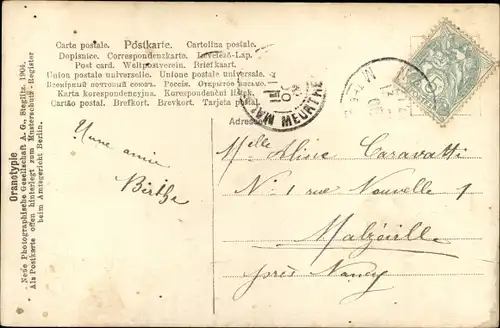 Carte postale. Postkarte. Cartolina postale.
Dopisnice. Correspondenzkarte. Levelező-Lap.
Post card. Weltpostverein. Briefkaart.
Union postale universelle. Unione postale universale.
Всемірный почтовый союзъ. Россія. Открытое письмо.
Karta korespondencyjna. Korespondenční lístek.
Cartão postal. Brefkort. Brevkort. Tarjeta postal.
Adresse
MEURTHE
Une amie
Berthe
Melle Aline Caravatti
No 1 rue Nouvelle 1
Malzéville
près Nancy
Oranotypie
Neue Photographische Gesellschaft A. G., Steglitz. 1904.
Als Postkarte offen hinterlegt zum Musterschutz-Register
beim Amtsgericht Berlin.